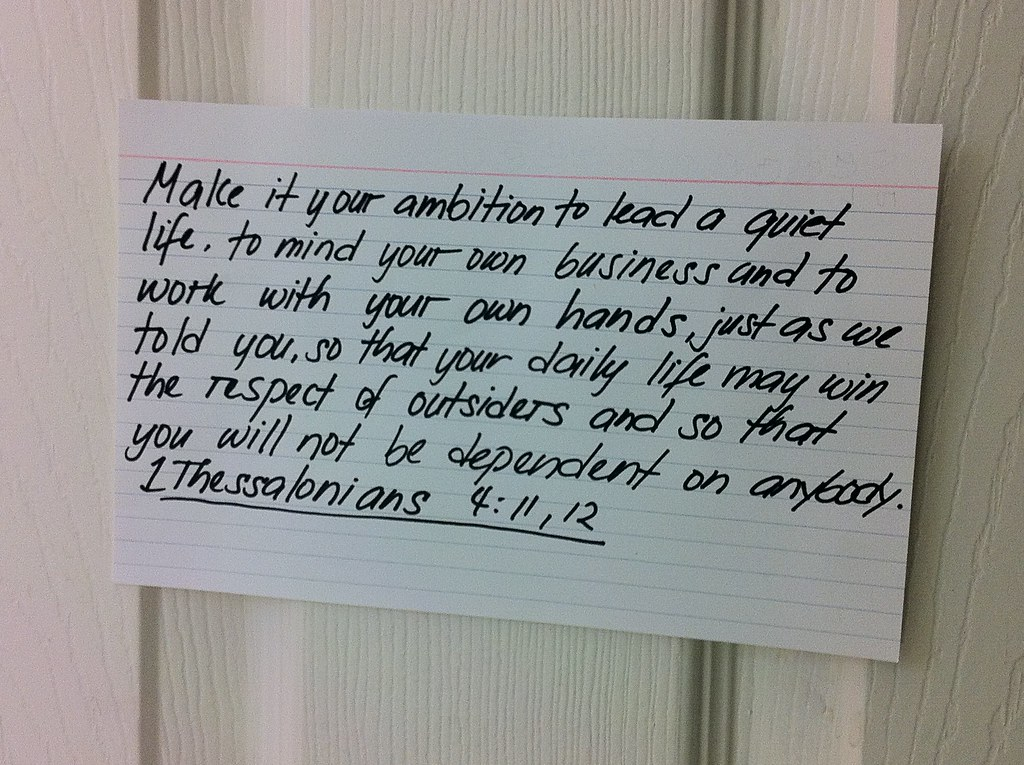 Make it your ambition to lead a quiet
life. to mind your own business and to
work with your own hands, just as we
told you, so that your daily life may win
the respect of outsiders and so that
you will not be dependent on anybody.
1 Thessalonians 4:11, 12